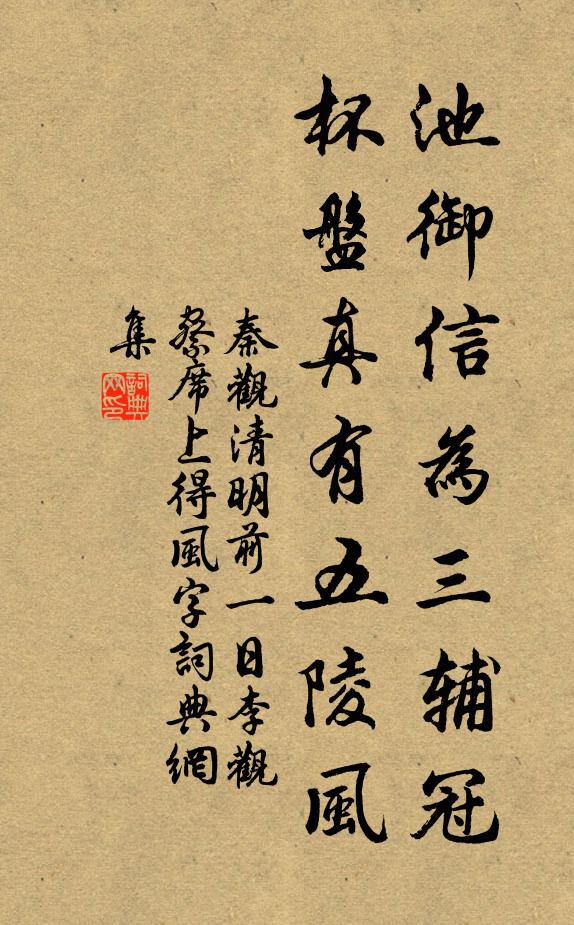 池御信為三辅冠
杯盤真有五陵風
秦觀清明前一日李觀
察席上得風字詞典網
集
詞典
网印